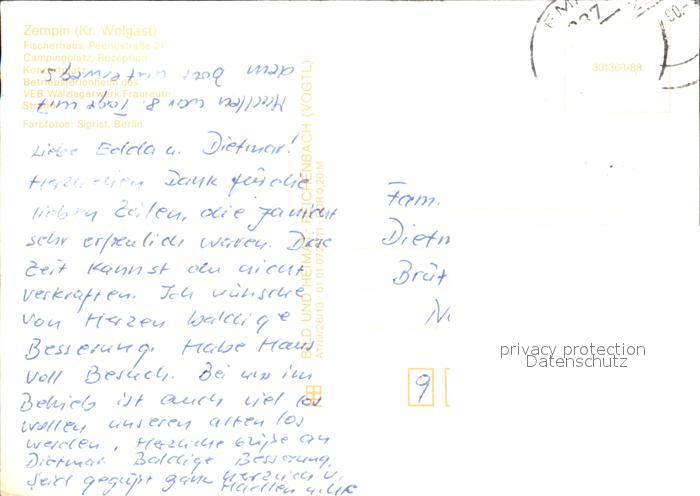 Zempin (Kr. Wolgast)
Fischerhaus, Peenestraße 2
Campingplatz, Rezeption
Betriebsferienheim des
VEB Wälzlagerwerk Fraureuth
Farbfotos: Sigrist, Berlin
dem Boot unterwegs
waren vor 8 Tage mit
Liebe Edda u. Dietmar!
Herzlichen Dank für die
lieben Zeilen, die ja nicht
sehr erfreulich waren. Die
Zeit kannst du nicht
verkraften. Ich wünsche
von Herzen baldige
Besserung. Habe Haus
voll Besuch. Bei uns im
Betrieb ist auch viel los
wollen unseren alten los
werden. Herzliche Grüße an
Dietmar. Baldige Besserung.
Seid gegrüßt ganz herzlich v.
BILD UND HEIMAT REICHENBACH (VOGTL)
Fam.
Dietm
Brüt
9
301369/88
privacy protection
Datenschutz